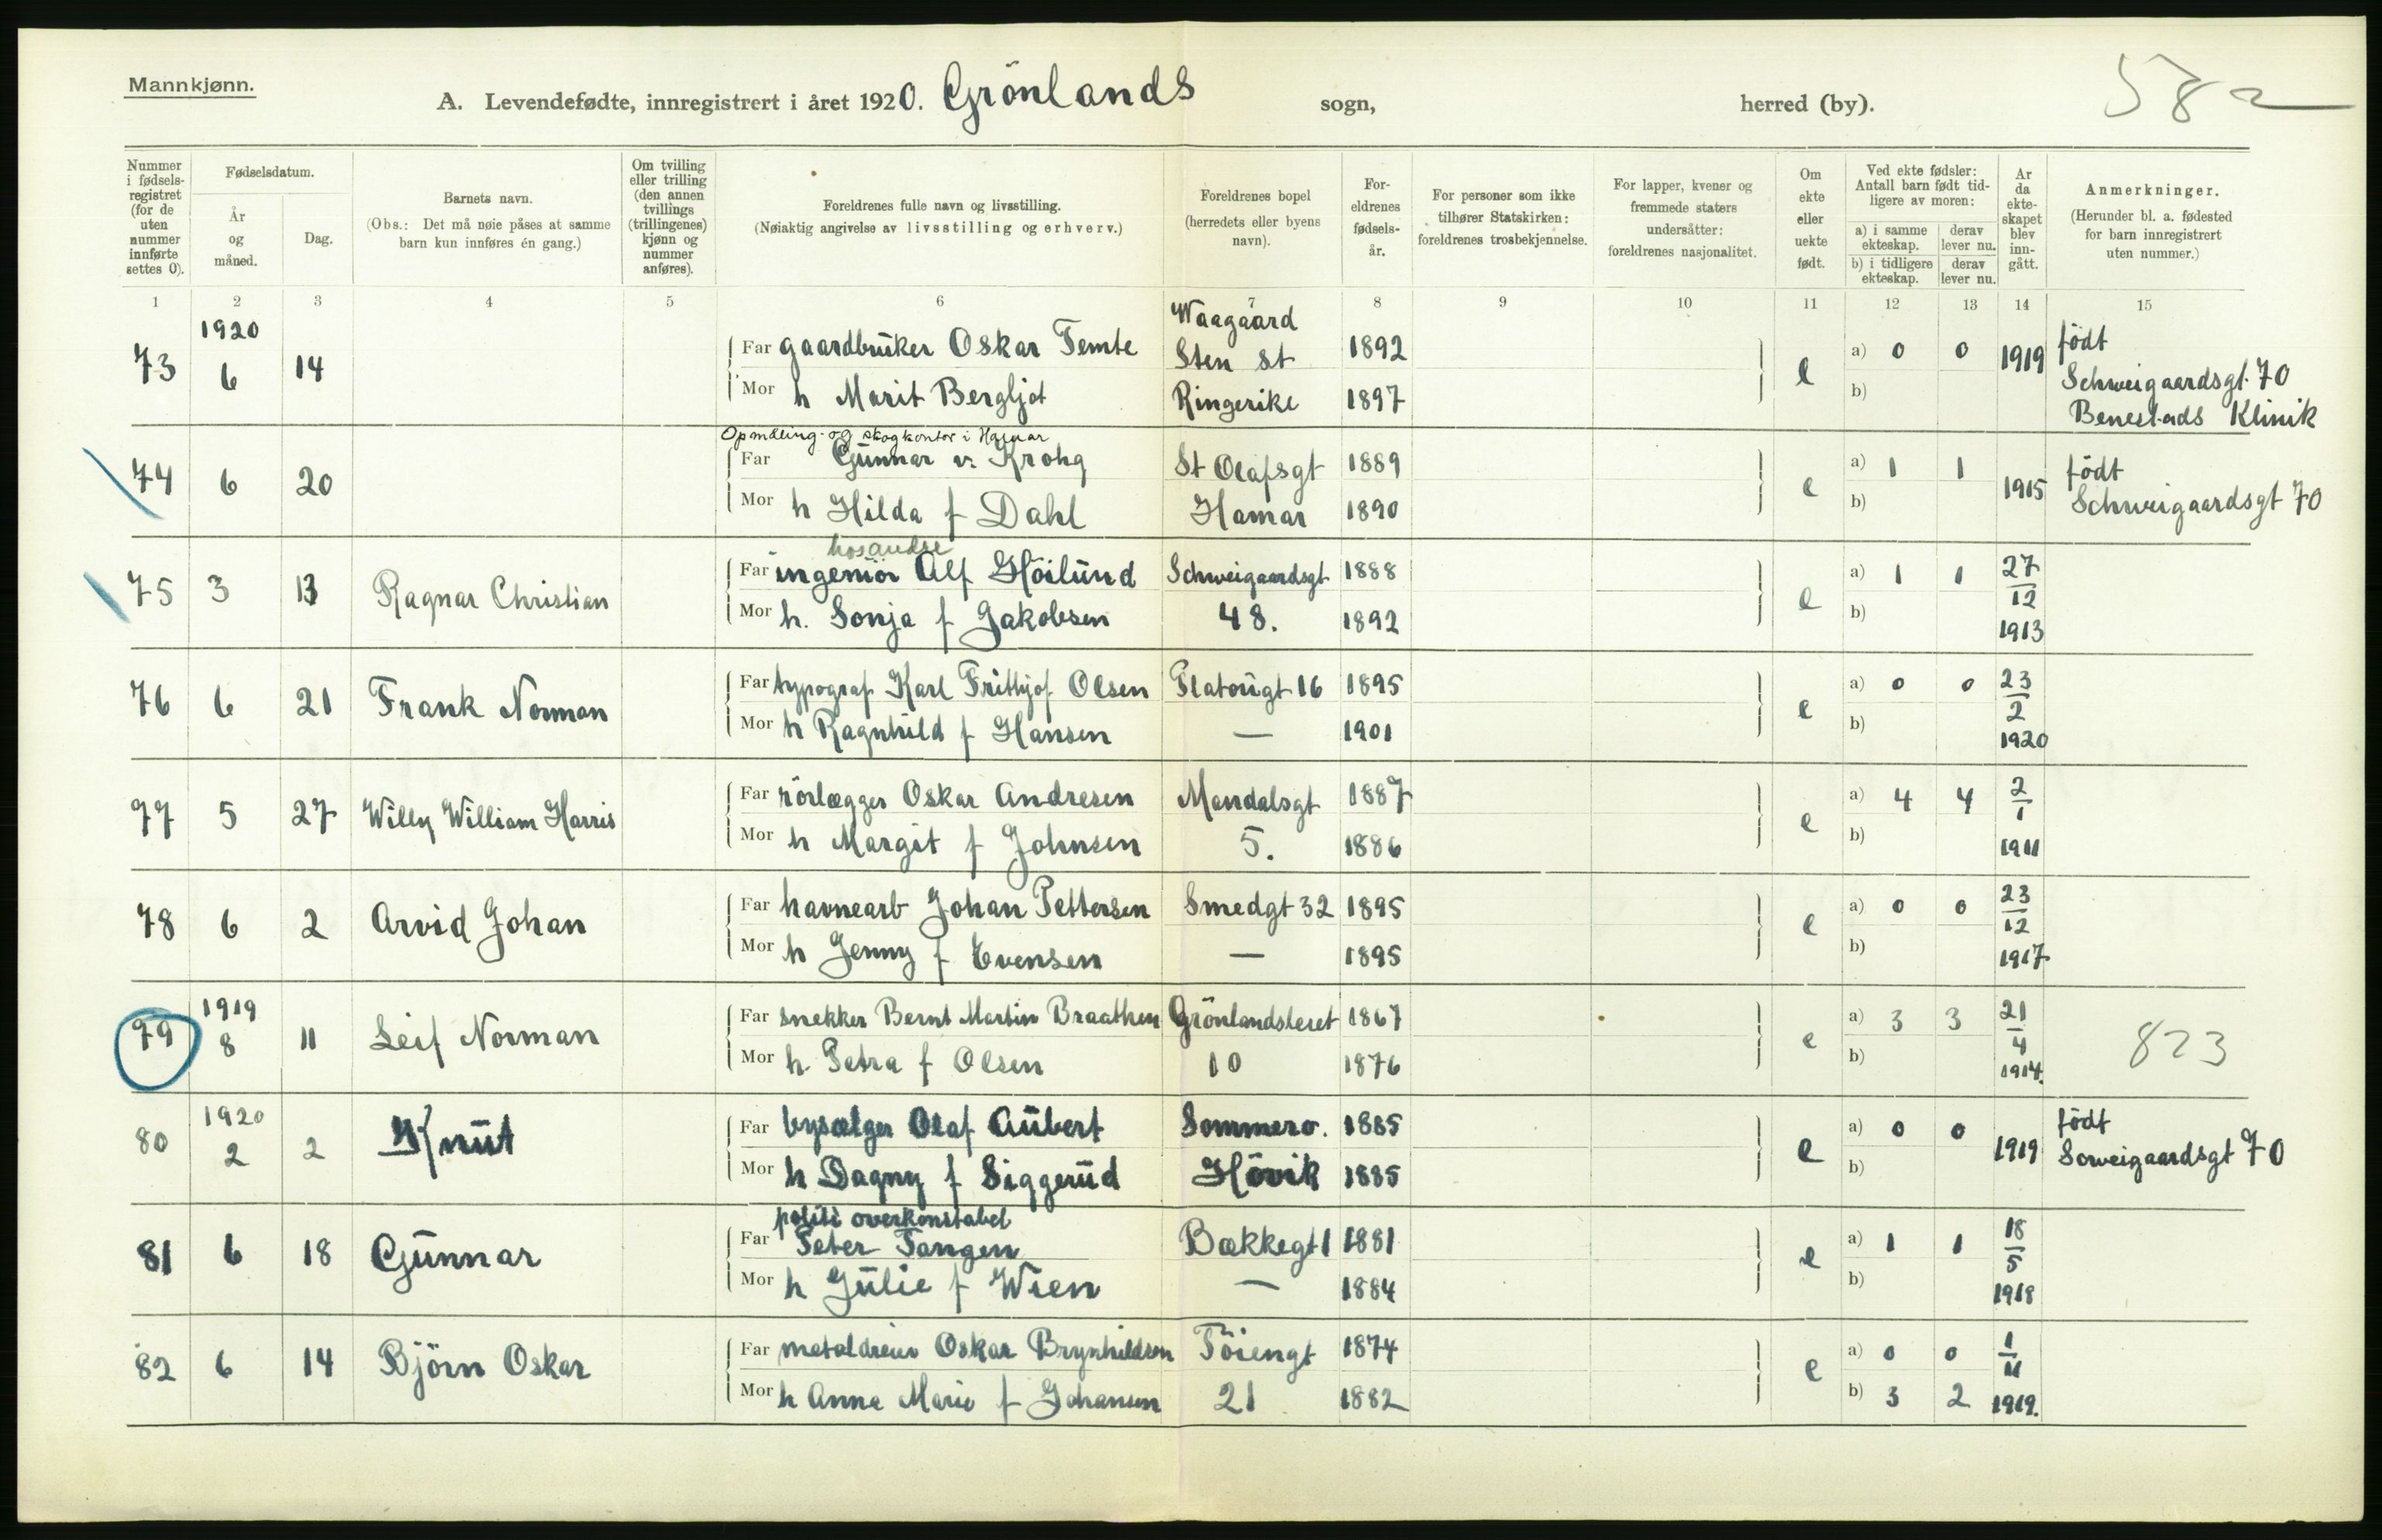 Mannkjønn.
A. Levendefødte, innregistrert i året 1920. Grönlands sogn, herred (by).
582
Nummer i fødselsregistret (for de uten nummer innførte settes 0).
Fødselsdatum.
År og måned.
Dag.
Barnets navn.
(Obs.: Det må nøie påses at samme barn kun innføres én gang.)
Om tvilling eller trilling (den annen tvillings (trillingenes) kjønn og nummer anføres).
Foreldrenes fulle navn og livsstilling.
(Nøiaktig angivelse av livsstilling og erhverv.)
Foreldrenes bopel (herredets eller byens navn).
Foreldrenes fødselsår.
For personer som ikke tilhører Statskirken: foreldrenes trosbekjennelse.
For lapper, kvener og fremmede staters undersåtter: foreldrenes nasjonalitet.
Om ekte eller uekte født.
Ved ekte fødsler: Antall barn født tidligere av moren:
a) i samme ekteskap. derav lever nu.
b) i tidligere ekteskap. derav lever nu.
År da ekteskapet blev inngått.
Anmerkninger.
(Herunder bl. a. fødested for barn innregistrert uten nummer.)
1 2 3 4 5 6 7 8 9 10 11 12 13 14 15
1920 Waagaard
73 6 14 Far gaardbruker Oskar Temte Sten st 1892 e a) 0 0 1919 födt
Mor h Marit Bergljot Ringerike 1897 b) Schweigaardsgt. 70
Benestads Klinik
Opmåling- og skogkontor i Hamar
74 6 20 Far Gunnar v. Krohg St Olafsgt 1889 e a) 1 1 1915 födt
Mor h Hilda f Dahl Hamar 1890 b) Schweigaardsgt 70
hos andre
75 3 13 Ragnar Christian Far ingeniör Alf Höilund Schweigaardsgt 1888 e a) 1 1 27/12
Mor h. Sonja f Jakobsen 48. 1892 b) 1913
76 6 21 Frank Norman Far typograf Karl Frithjof Olsen Platougt 16 1895 e a) 0 0 23/2
Mor h Ragnhild f Hansen — 1901 b) 1920
77 5 27 Willy William Harris Far rörlægger Oskar Andresen Mandalsgt 1887 e a) 4 4 2/1
Mor h Margit f Johnsen 5. 1886 b) 1911
78 6 2 Arvid Johan Far havnearb Johan Pettersen Smedgt 32 1895 e a) 0 0 23/12
Mor h Jenny f Evensen — 1895 b) 1917
1919
79 8 11 Leif Norman Far snekker Bernt Martin Braathen Grönlandsleret 1867 e a) 3 3 21/4 823
Mor h. Petra f Olsen 10 1876 b) 1914.
1920
80 2 2 Knut Far bysælger Olaf Aubert Sommero. 1885 e a) 0 0 1919 födt
Mor h Dagny f Siggerud Hövik 1885 b) Sorveigaardsgt 70
politi overkonstabel
81 6 18 Gunnar Far Peter Tangen Bækkegt 1 1881 e a) 1 1 18/5
Mor h Julie f Wien — 1884 b) 1918
82 6 14 Björn Oskar Far metaldreier Oskar Brynhildsen Töiengt 1874 e a) 0 0 1/11
Mor h Anna Marie f Johansen 21 1882 b) 3 2 1919.